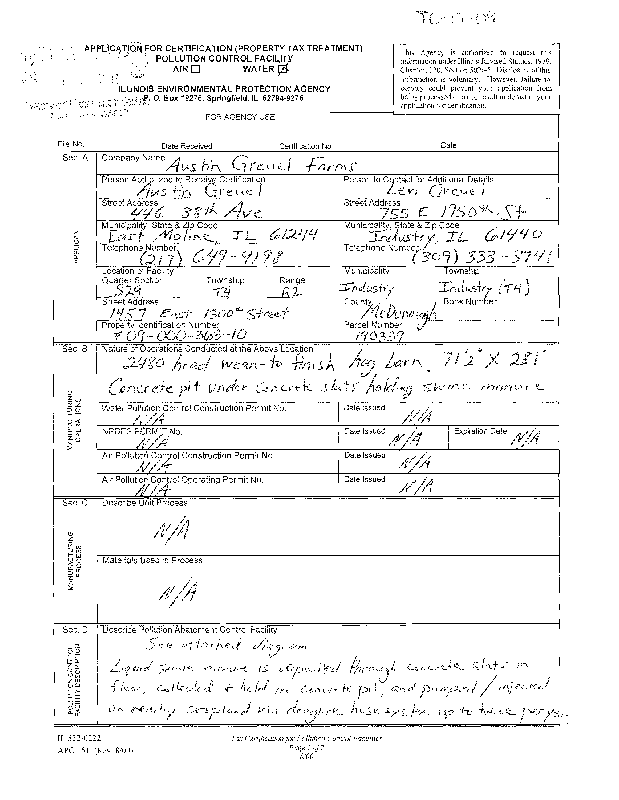 APPLICATION FOR CERTIFICATION (PROPERTY TAX TREATMENT)
POLLUTION CONTROL FACILITY
AIR ☐ WATER ☑
ILLINOIS ENVIRONMENTAL PROTECTION AGENCY
P. O. Box 19276, Springfield, IL 62794-9276
This Agency is authorized to request this
information under Illinois Revised Statutes, 1979,
Disclosure of this
information is voluntary. However, failure to
comply could prevent your application from
being processed or could result in denial of your
application for certification.
FOR AGENCY USE
File No. Date Received Certification No. Date
Sec. A Company Name Austin Greuel Farms
Person Authorized to Receive Certification Austin Greuel
Person to Contact for Additional Details Levi Greuel
Street Address 446 38th Ave
Street Address 755 E 1750th St
Municipality, State & Zip Code East Moline, IL 61244
Municipality, State & Zip Code Industry, IL 61440
Telephone Number (217) 649-4198
Telephone Number (309) 333-3741
Location of Facility
Quarter Section S29 Township T4 Range R2
Municipality Industry Township Industry (T4)
Street Address 1457 East 1300th Street
County McDonough Book Number
Property Identification Number #09-000-363-10
Parcel Number 190339
APPLICANT
Sec. B Nature of Operations Conducted at the Above Location
2480 head wean-to finish hog barn, 71'2" X 231'
Concrete pit under concrete slats holding swine manure
MANUFACTURING OPERATIONS
Water Pollution Control Construction Permit No. N/A Date Issued N/A
NPDES PERMIT No. N/A Date Issued N/A Expiration Date N/A
Air Pollution Control Construction Permit No. N/A Date Issued N/A
Air Pollution Control Operating Permit No. N/A Date Issued N/A
Sec. C Describe Unit Process
N/A
MANUFACTURING PROCESS
Materials Used in Process
N/A
Sec. D Describe Pollution Abatement Control Facility
See attached diagram
Liquid swine manure is deposited through concrete slats in
floor, collected & held in concrete pit, and pumped / injected
on nearby cropland via dragline hose system up to twice per year
POLLUTION CONTROL FACILITY DESCRIPTION
IL 532-0222
Page 1 of 2